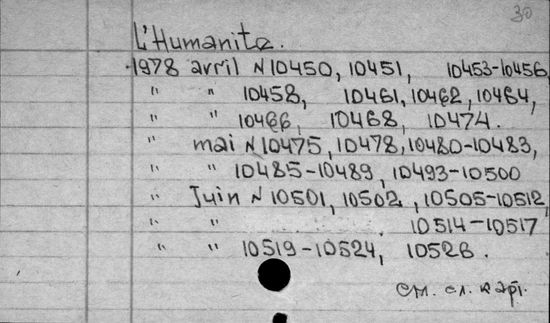 30
L'Humanite.
1978 avril N 10450, 10451, 10453-10456,
" " 10458, 10461, 10462, 10464,
" " 10466, 10468, 10474.
" mai N 10475, 10478, 10480-10483,
" " 10485-10489, 10493-10500
" Juin N 10501, 10502, 10505-10512,
" " 10514-10517
" " 10519-10524, 10526.
см. сл. карт.